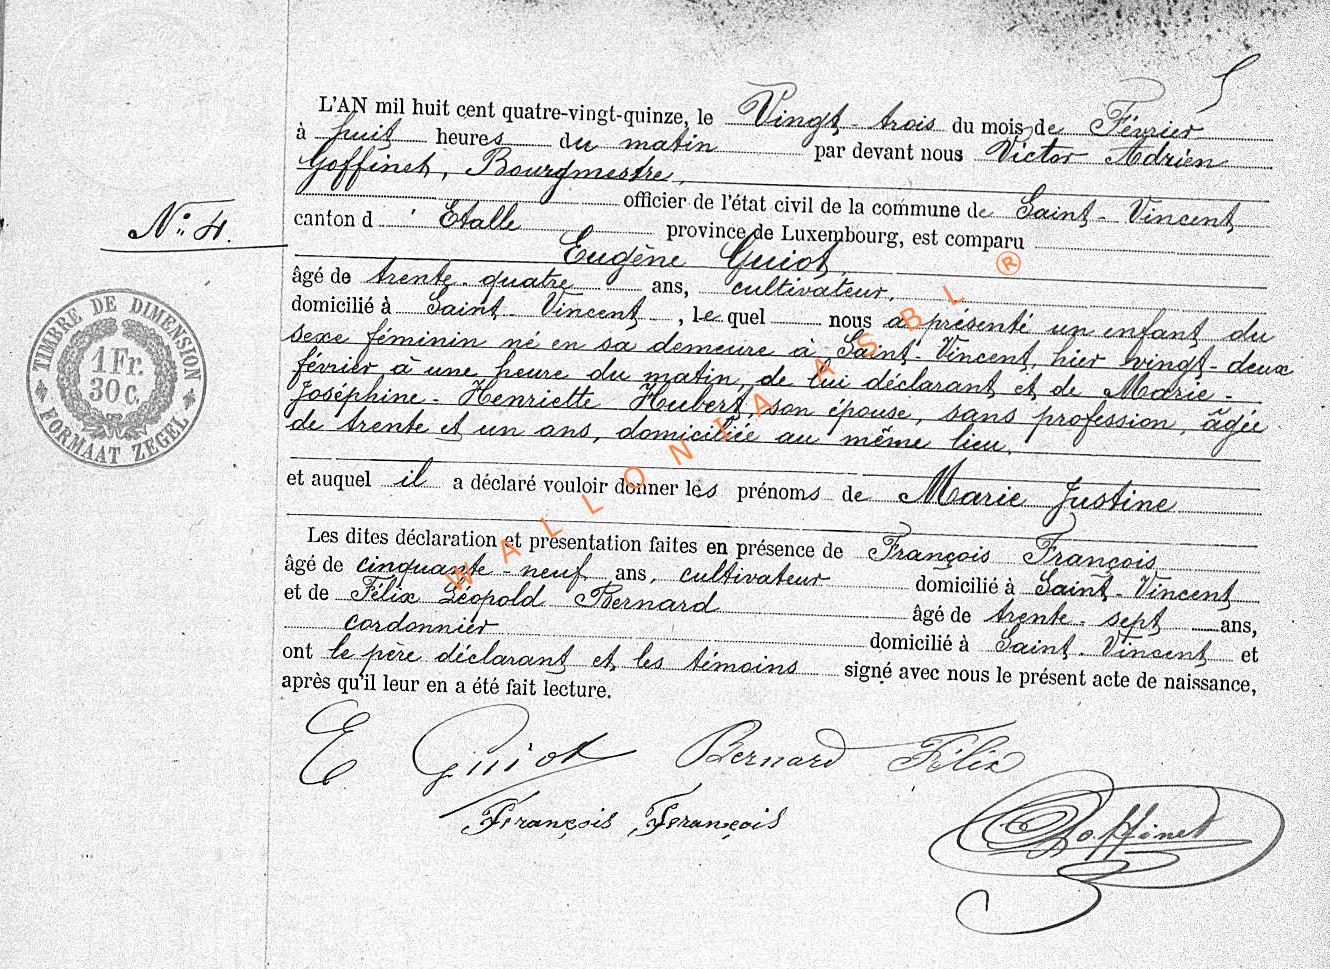 5
L'AN mil huit cent quatre-vingt-quinze, le Vingt-trois du mois de Février
à huit heures du matin par devant nous Victor Adrien
Goffinet, Bourgmestre,
officier de l'état civil de la commune de Saint-Vincent
N° 4.
canton d'Etalle province de Luxembourg, est comparu
Eugène Guiot,
âgé de trente-quatre ans, cultivateur,
domicilié à Saint-Vincent, lequel nous a présenté un enfant du
sexe féminin né en sa demeure à Saint-Vincent, hier vingt-deux
février à une heure du matin, de lui déclarant et de Marie-
Joséphine-Henriette Hubert, son épouse, sans profession, âgée
de trente et un ans, domiciliée au même lieu,
et auquel il a déclaré vouloir donner les prénoms de Marie Justine
Les dites déclaration et présentation faites en présence de François François
âgé de cinquante-neuf ans, cultivateur domicilié à Saint-Vincent
et de Félix Léopold Bernard âgé de trente-sept ans,
cordonnier domicilié à Saint-Vincent et
ont le père déclarant et les témoins signé avec nous le présent acte de naissance,
après qu'il leur en a été fait lecture.
E Guiot Bernard Félix
François François
Goffinet
TIMBRE DE DIMENSION
1 Fr.
30 C.
FORMAAT ZEGEL
WALLONIA ASBL ®